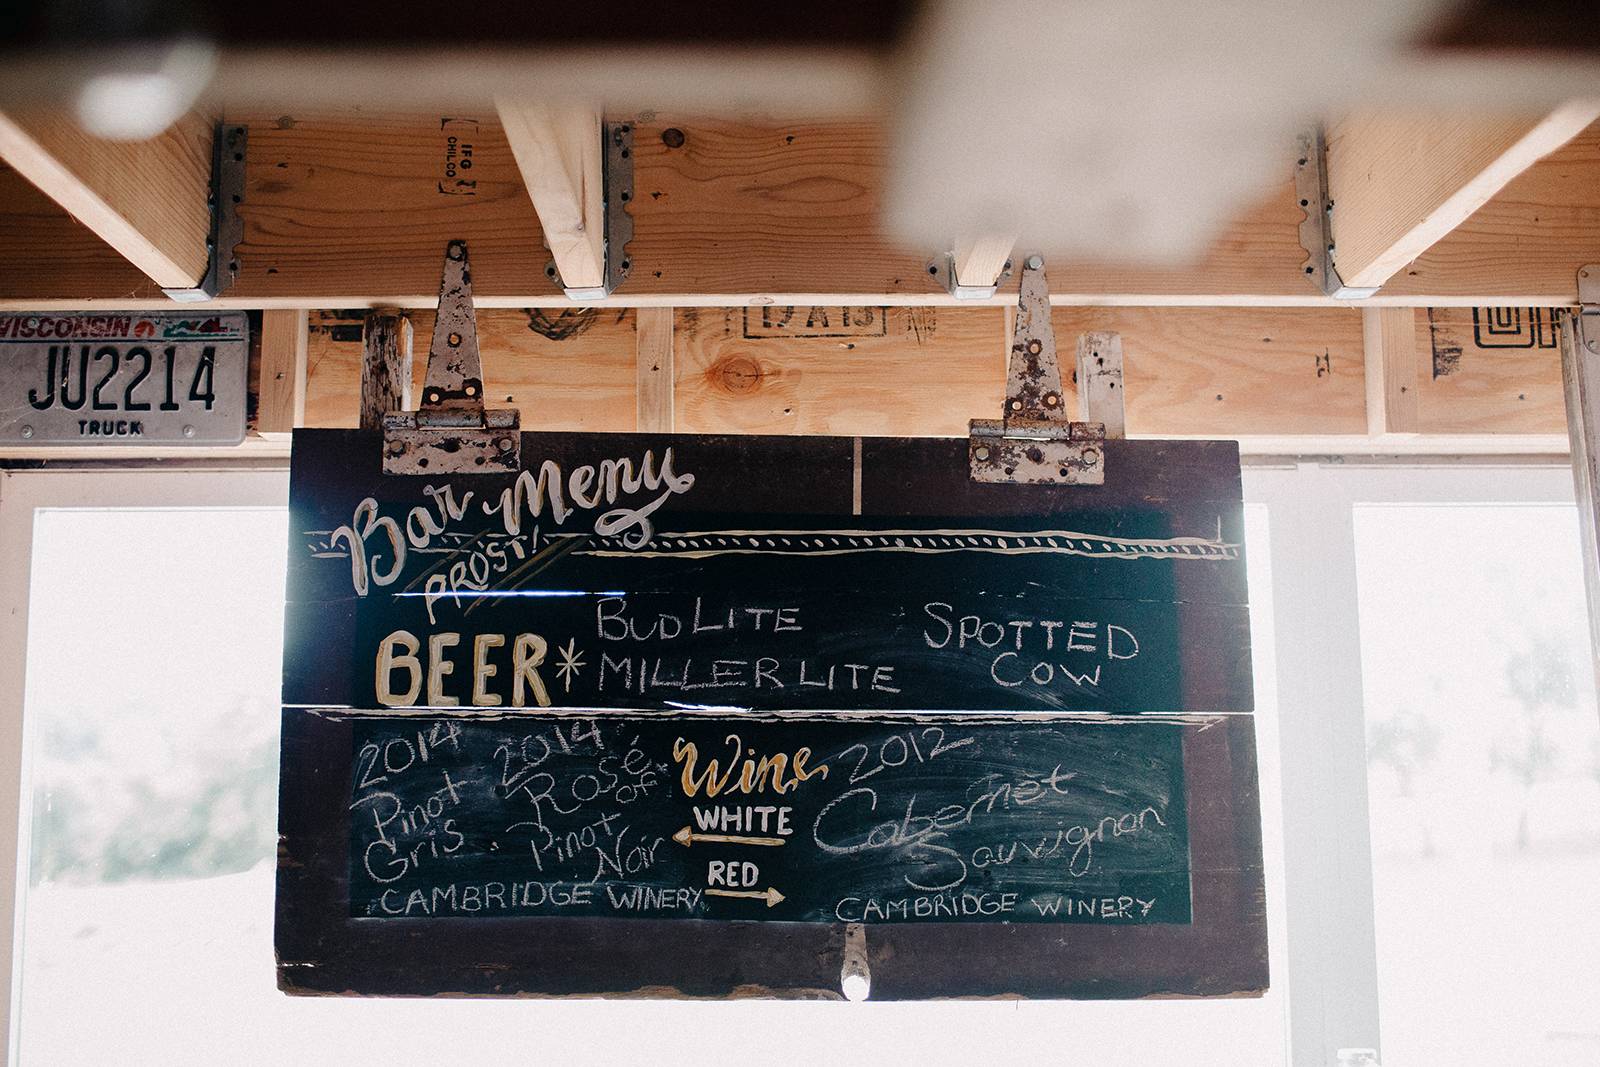 IFG
CHILCO
WISCONSIN
JU2214
TRUCK
17A13
Bar Menu
PROST!
BEER*
BUD LITE
MILLER LITE
SPOTTED
COW
2014
Pinot
Gris
2014
Rosé
of
Pinot
Noir
CAMBRIDGE WINERY
Wine
WHITE
RED
2012
Cabernet
Sauvignon
CAMBRIDGE WINERY